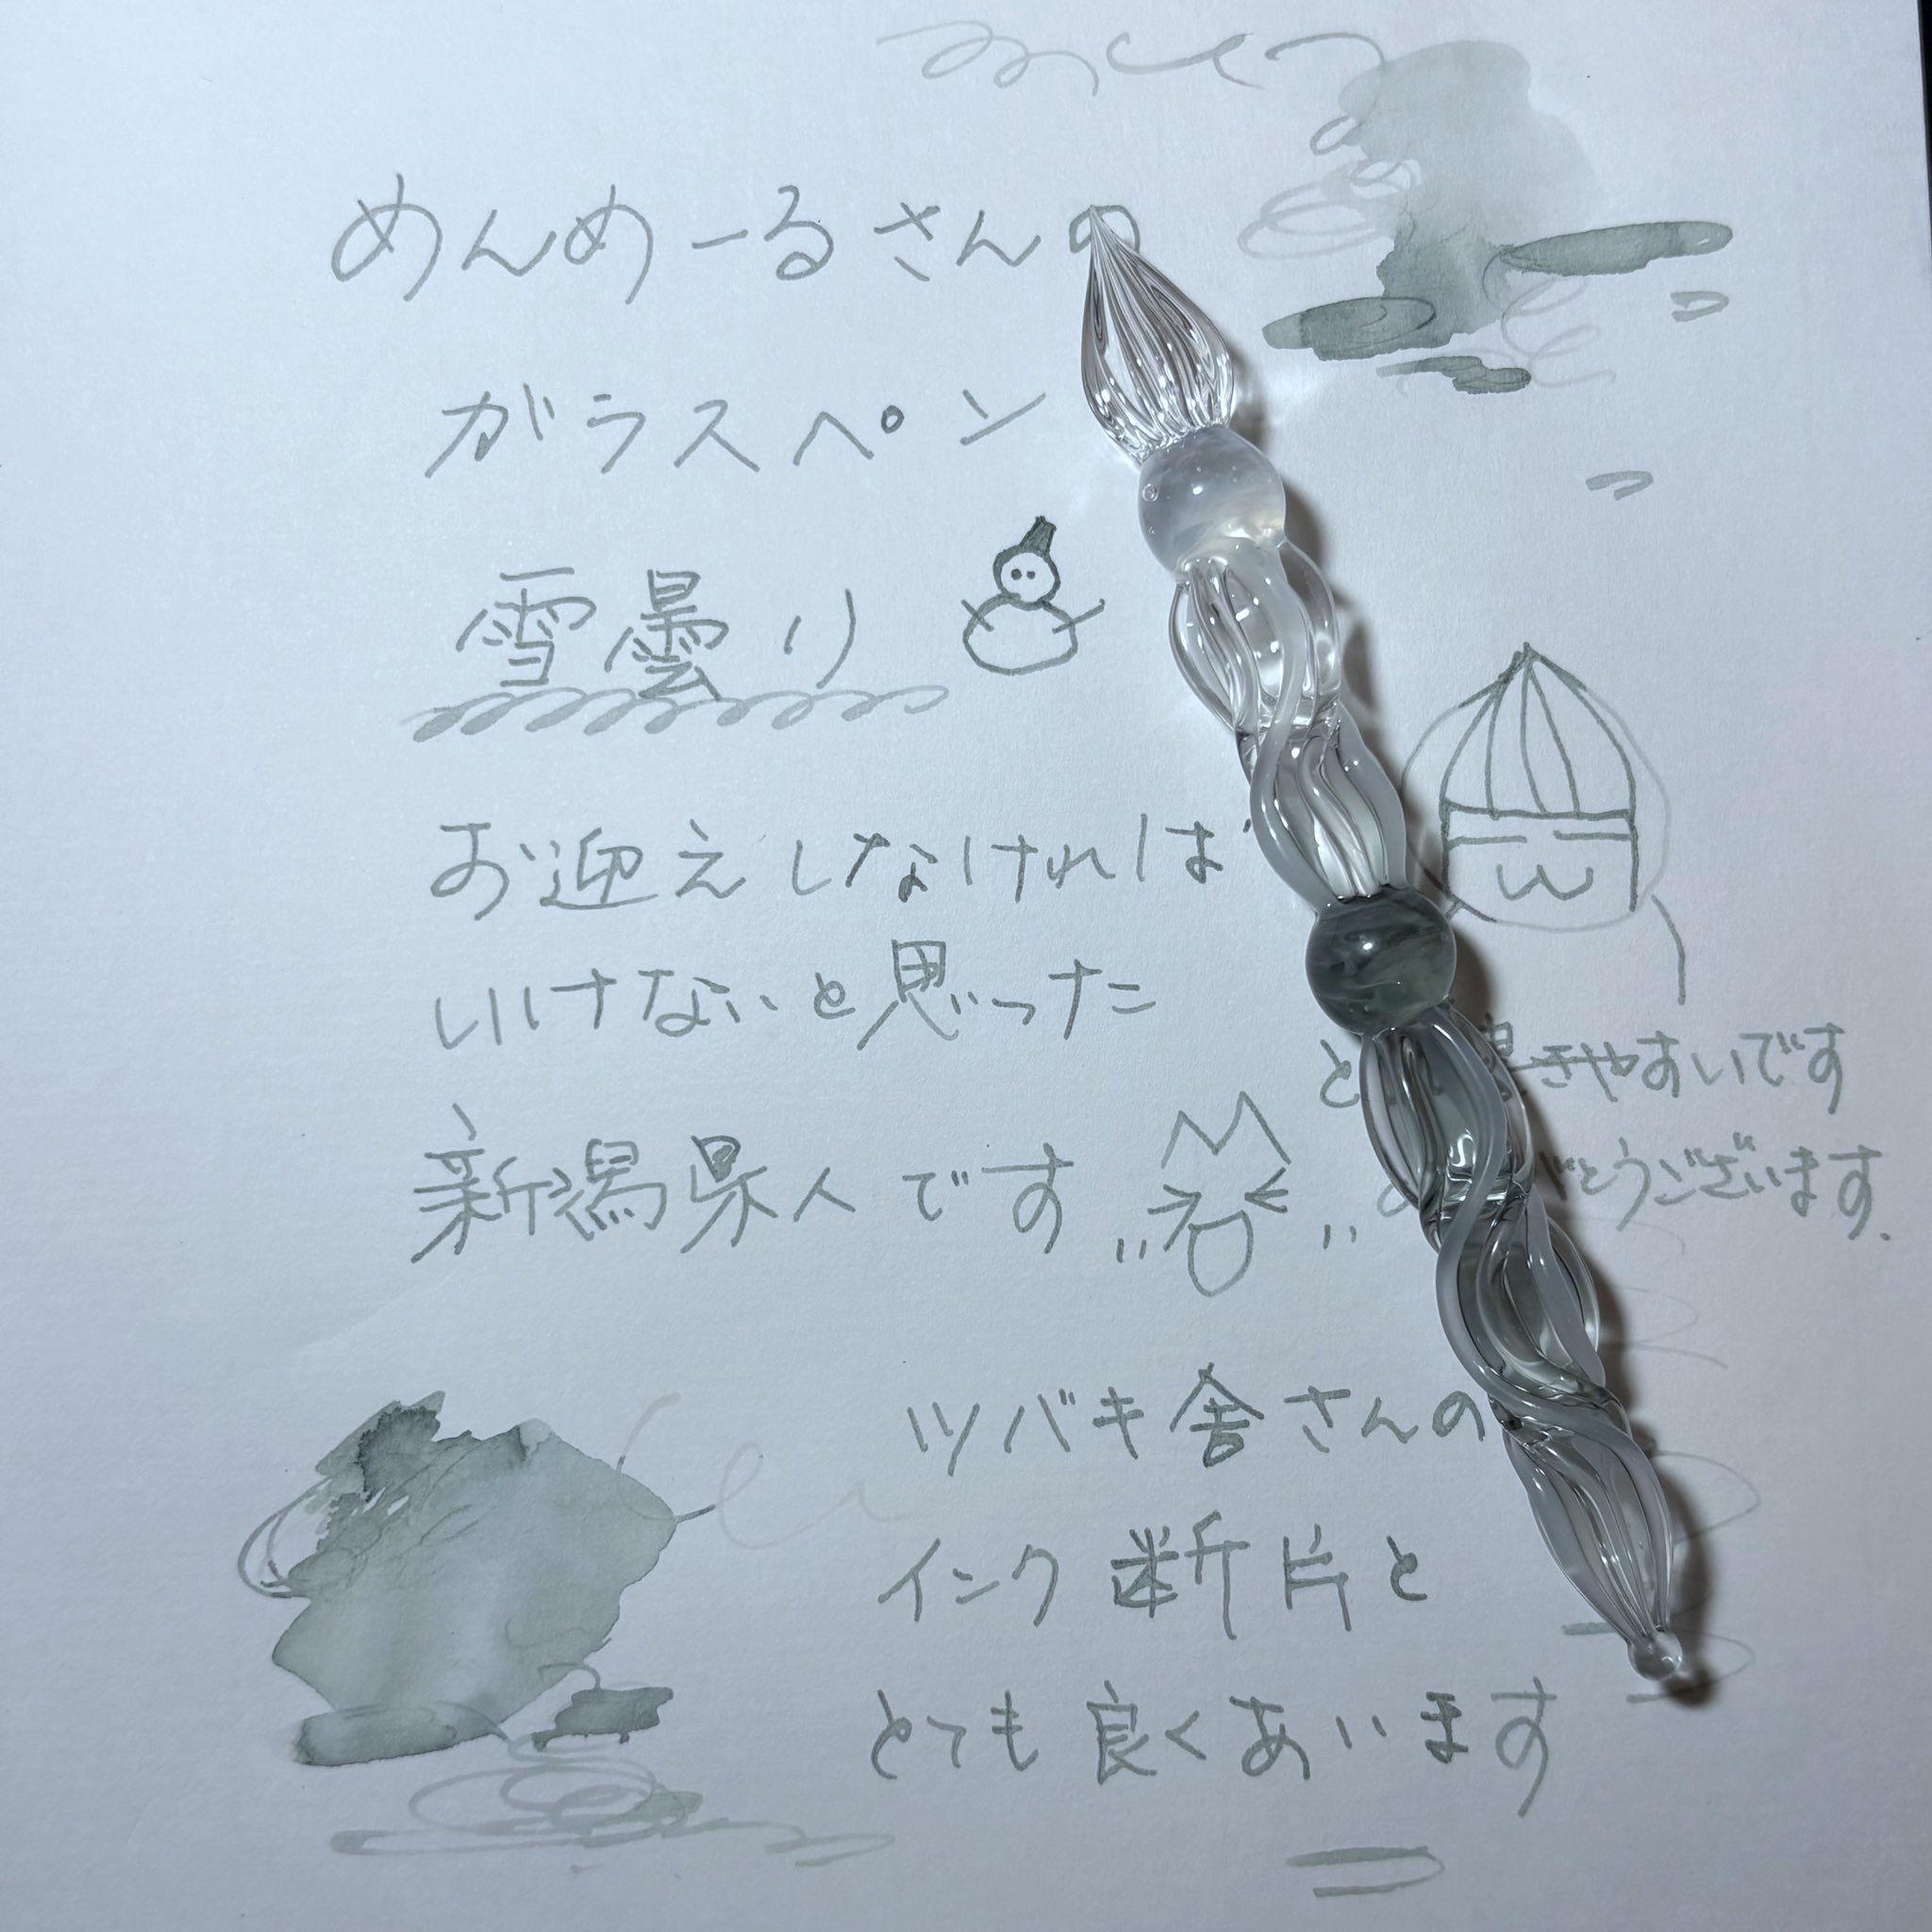 めんめーるさんの
ガラスペン
雪曇り
お迎えしなければ
いけないと思った
新潟県人です
と 書きやすいです
がとうございます.
ツバキ舎さんの
インク 断片と
とても良くあいます